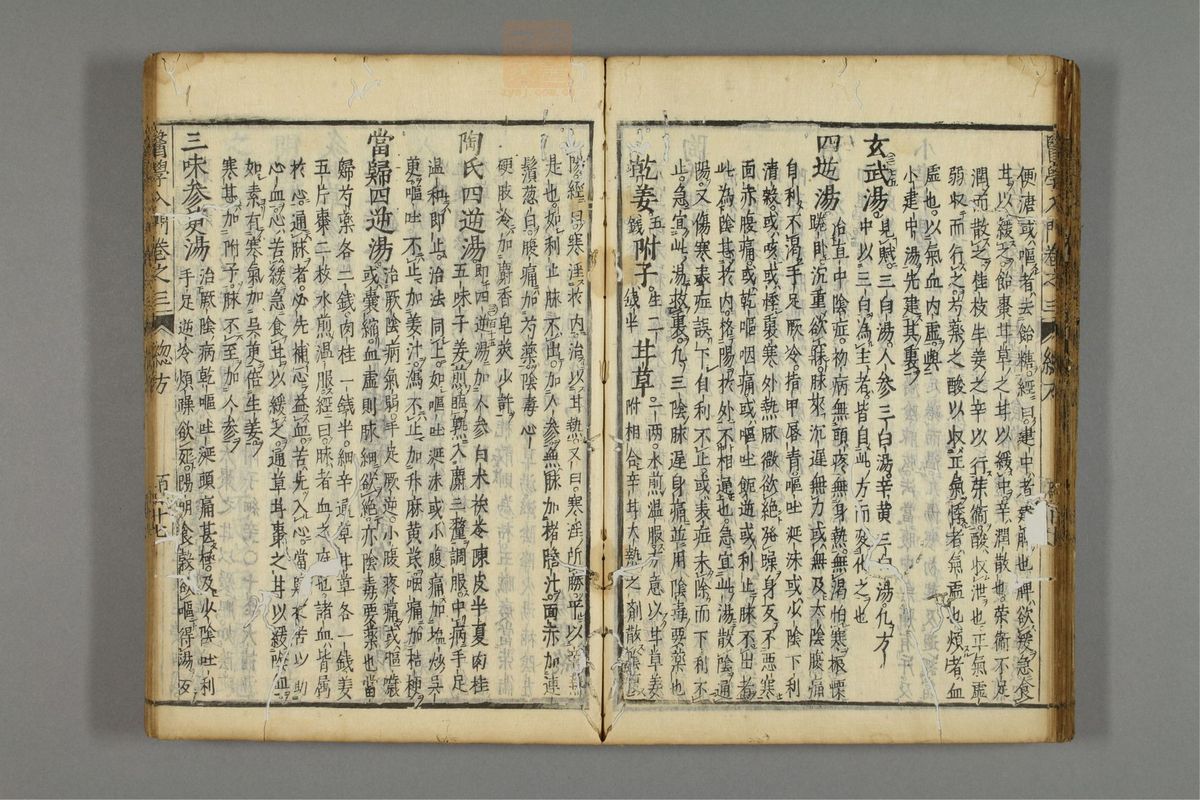 便溏或嘔者去飴糖經曰建中者建脾也脾欲緩急食
甘以緩之飴棗甘草之甘以緩中辛潤散也榮衛不足
潤而散之佳枝生姜之辛以行榮衛酸收泄也正氣虛
弱收而行之芍藥之酸以收正氣悸者氣虛也煩者血
虛也以氣血内虛與
小建中湯先建其裏
玄武湯見賦三白湯人參三白湯辛黄三白湯化方
中以三白為主者皆自此方而変化之也
四逆湯治直中陰症初病無頭疼無身熱無渇怕寒極慄
踡卧沉重欲寐脉來沉遲無力或無及太陰腹痛
自利不渴手足厥冷指甲唇青嘔吐延沫或少陰下利
清穀或咳或悸裏寒外熱脉微欲絶発躁身反不悪寒
面赤腹痛或乾嘔咽痛或嘔吐飯逆或利止脉不出者
此為陰甚於内格陽於外不相通也急宜此湯散陰通
陽又傷寒表症誤下自利不止或表症未除而下利不
止急宜此湯救裏凡三陰脉遲身痛並用陰毒要藥也
乾姜五錢附子生二錢半甘草一兩水煎温服方意以甘草姜
附相合辛甘大熱之剤散
陰經曰寒淫於内治以甘熱又曰寒淫所勝平以辛熱
是也如利止脉不出加人參無脉加猪膽汁面赤加連
鬚葱白腹痛加芍藥陰毒心
硬肢冷加麝香皂莢少許
陶氏四逆湯即四逆湯加人參白术茯苓陳皮半夏肉桂
五味子姜煎臨熟入麝三釐調服中病手足
温和即止治法同上如嘔吐涎沫或小腹痛加塩炒吳
萸嘔吐不止加姜汁瀉不止加升麻黄芪咽痛加桔梗
當歸四逆湯治厥陰病氣弱手足厥逆小腹疼痛或嘔噦
或囊縮血虛則脉細欲絶亦陰毒要藥也當
歸芍藥各二錢肉桂一錢半細辛通草甘草各一錢姜
五片棗二枝水煎温服經曰脉者血之府也諸血皆属
於心通脉者必先補心益血苦先入心當歸之苦以助
心血心苦緩急食甘以緩之通草甘棗之甘以緩陰血
如素有寒氣加吳萸倍生姜
寒甚加附子脉不至加人參
三味參萸湯治厥陰病乾嘔吐涎頭痛甚極及少陰吐利
手足逆冷煩躁欲死陽明食穀欲嘔得湯反
醫學入門卷之三
總方